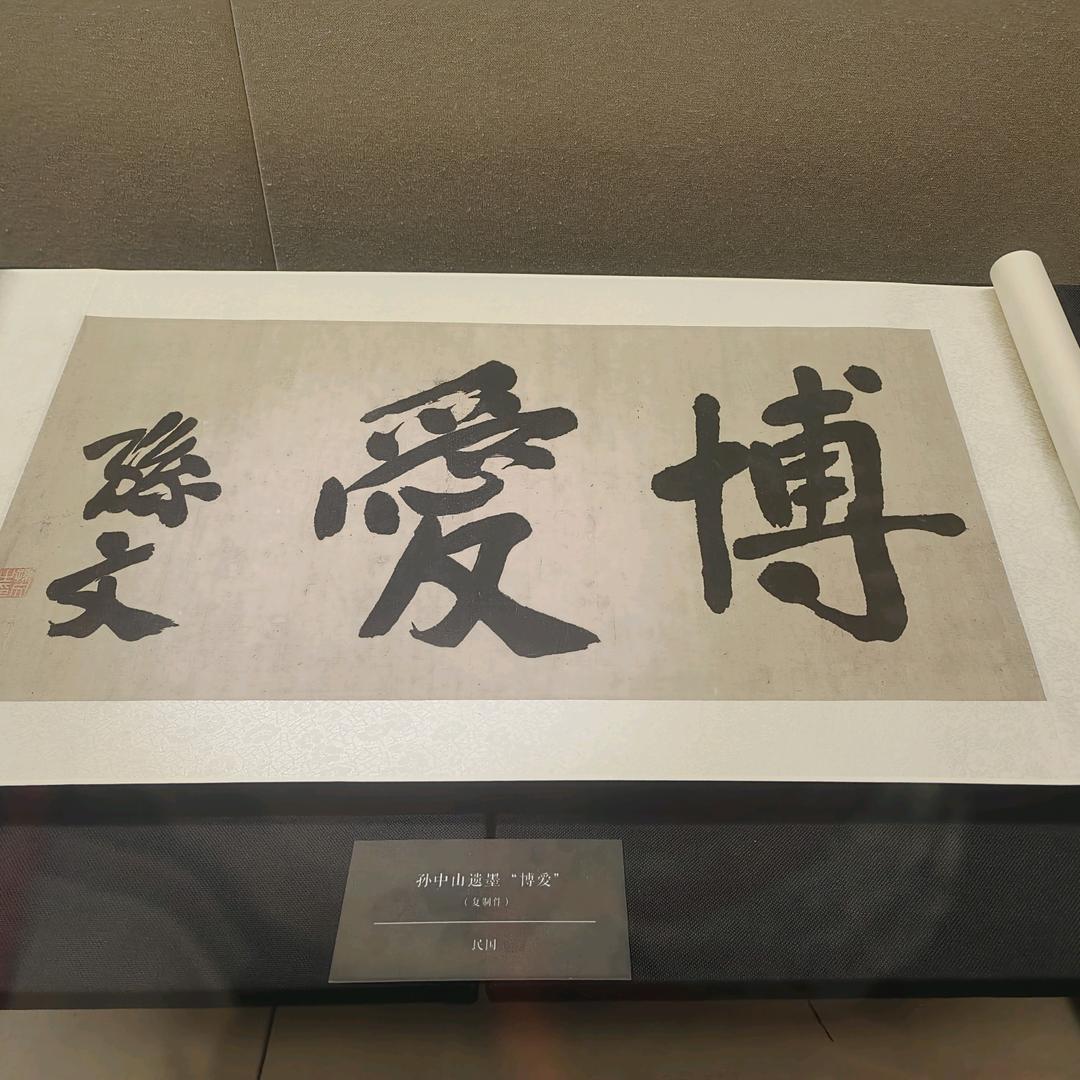 博愛
孫文
孙中山遗墨“博爱”
（复制件）
民国